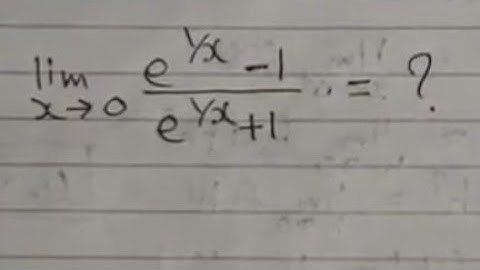 lim x→0 (e^(1/x) - 1)/(e^(1/x) + 1) = ?